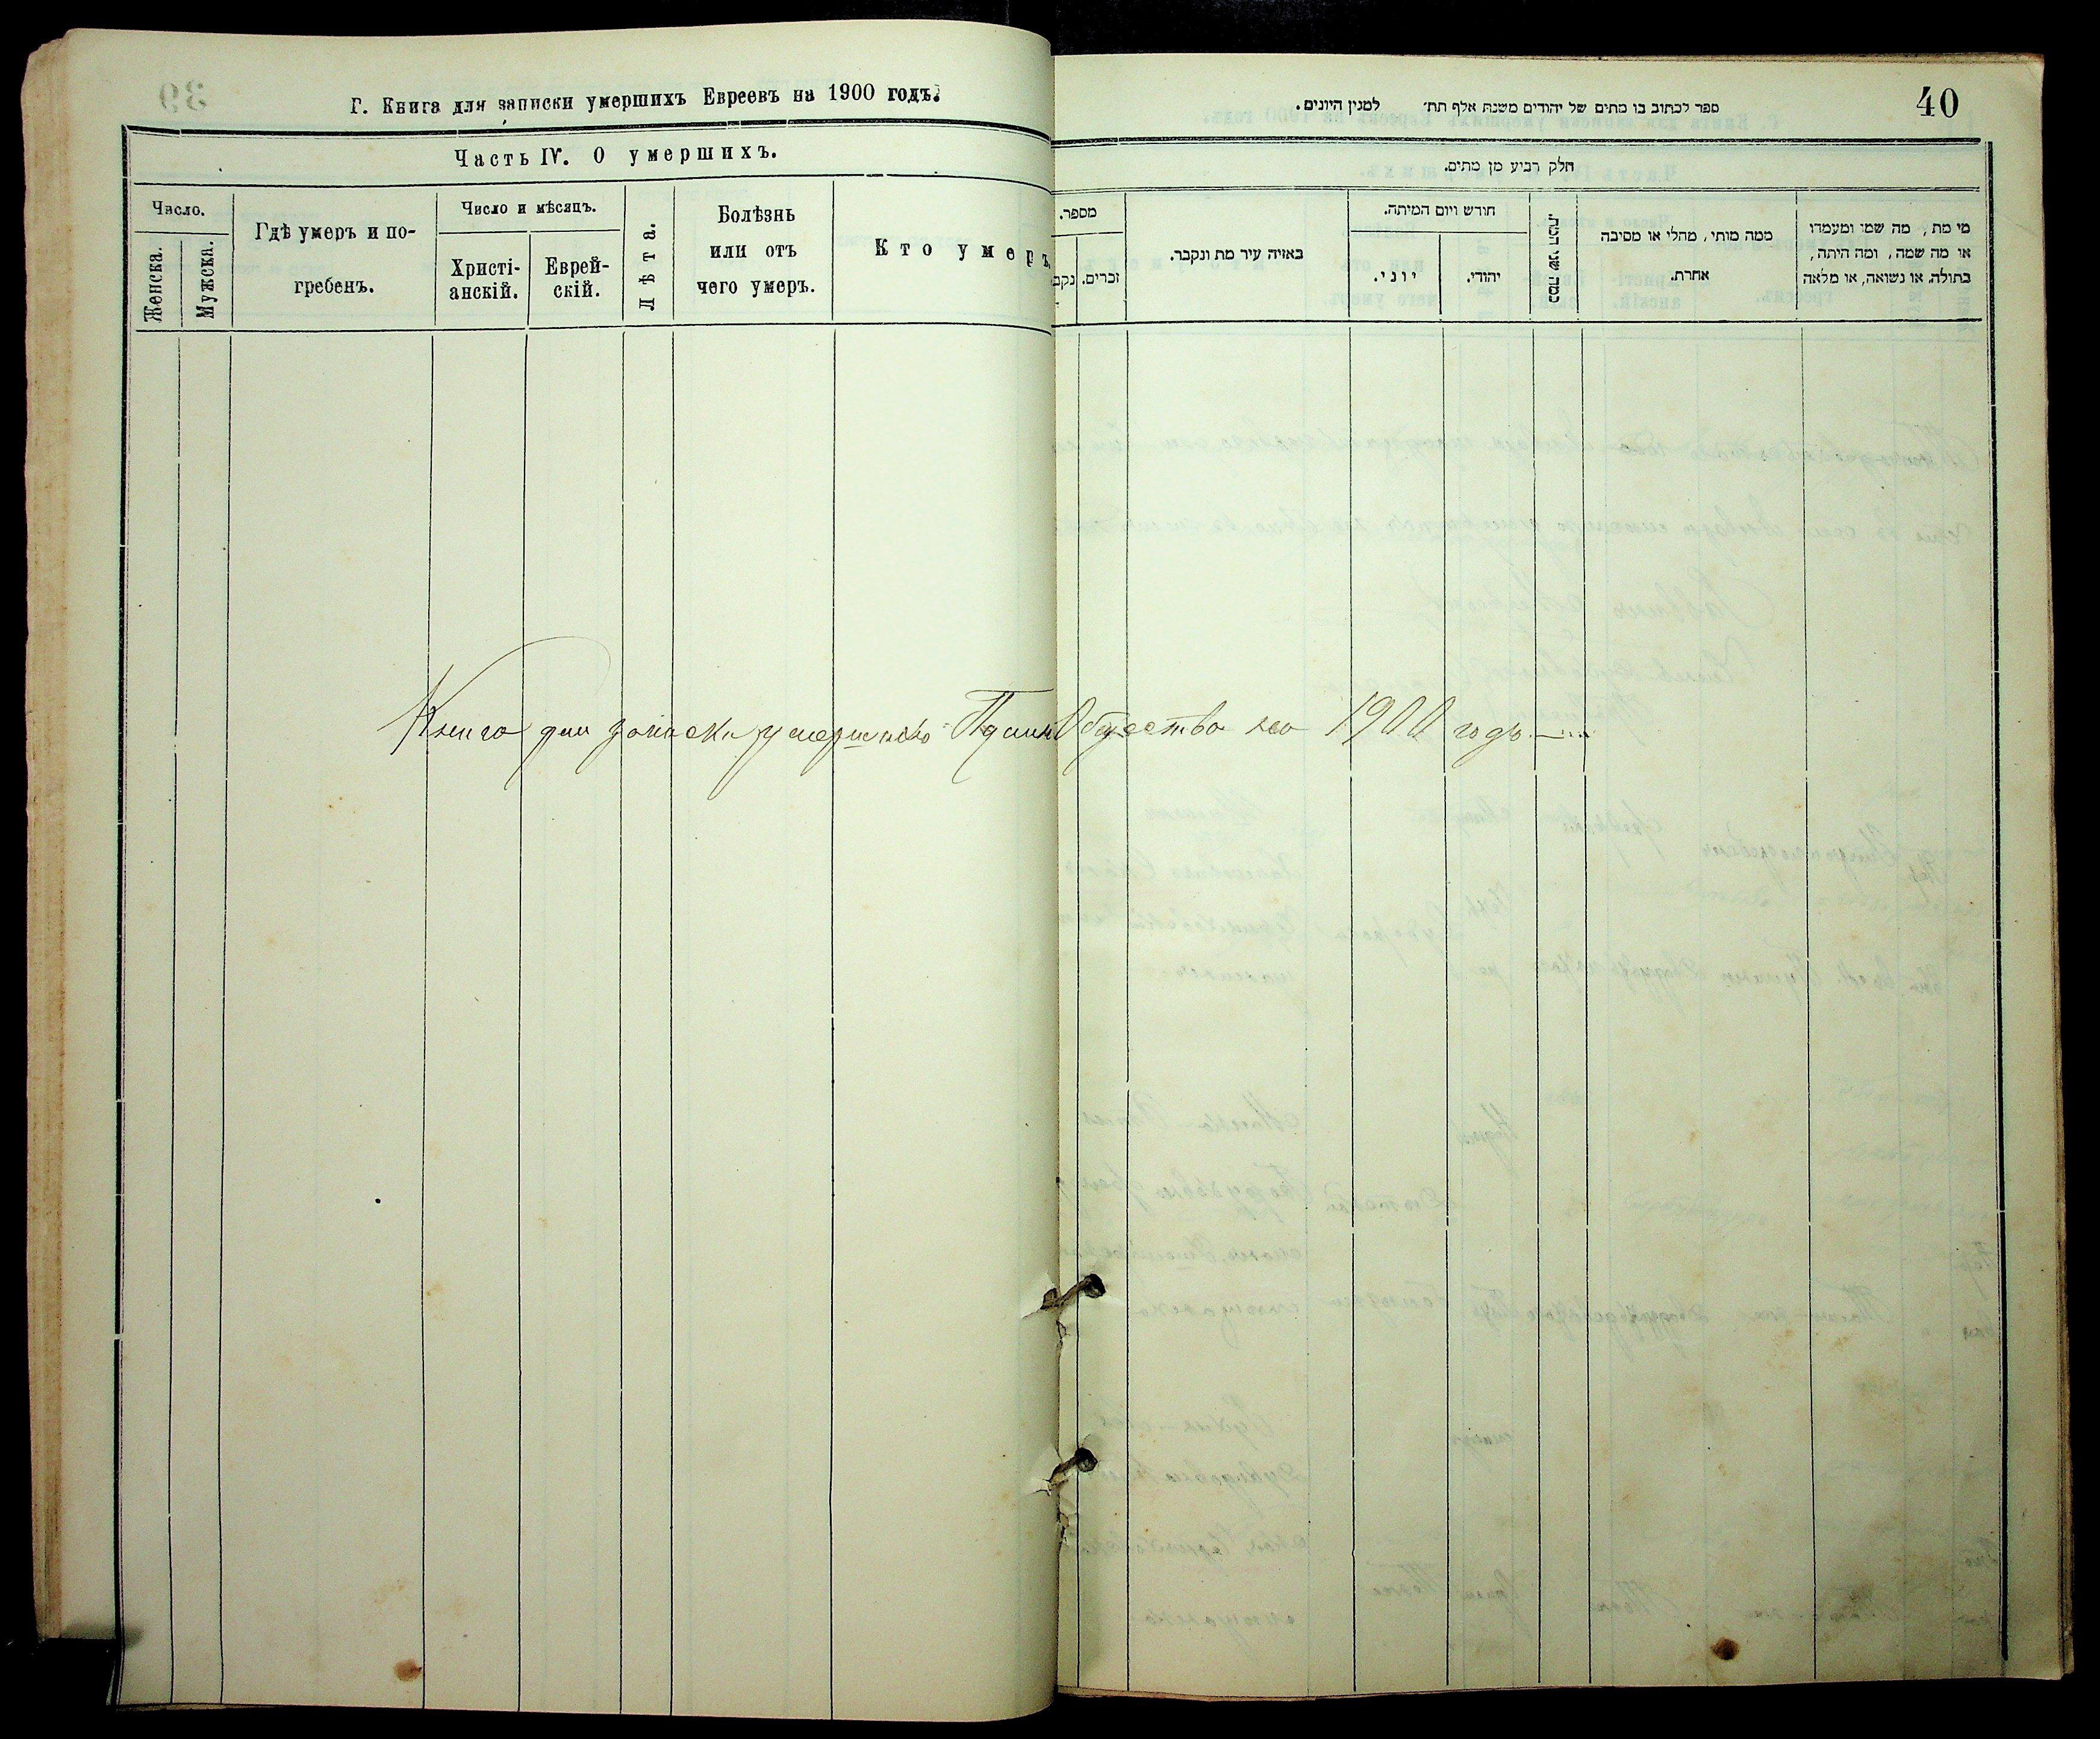 Г. Книга для записки умершихъ Евреевъ на 1900 годъ.
Часть IV. О умершихъ.
Число.
Женска.
Мужска.
Гдѣ умеръ и по-
гребенъ.
Число и мѣсяцъ.
Христі-
анскій.
Еврей-
скій.
Лѣта.
Болѣзнь
или отъ
чего умеръ.
Кто умеръ,
40
ספר לכתוב בו מתים של יהודים משנת אלף תת׳ למנין היונים.
חלק רביע מן מתים.
מספר.
נקב
זכרים.
באיזה עיר מת ונקבר.
חורש ויום המיתה.
יוני.
יהודי.
כמה שני חייו.
ממה מותי, מחלי או מסיבה
אחרת.
מי מת, מה שמו ומעמדו
או מה שמה, ומה היתה,
בתולה, או נשואה, או מלאה
Книга для записки умершихъ Общества на 1900 годъ